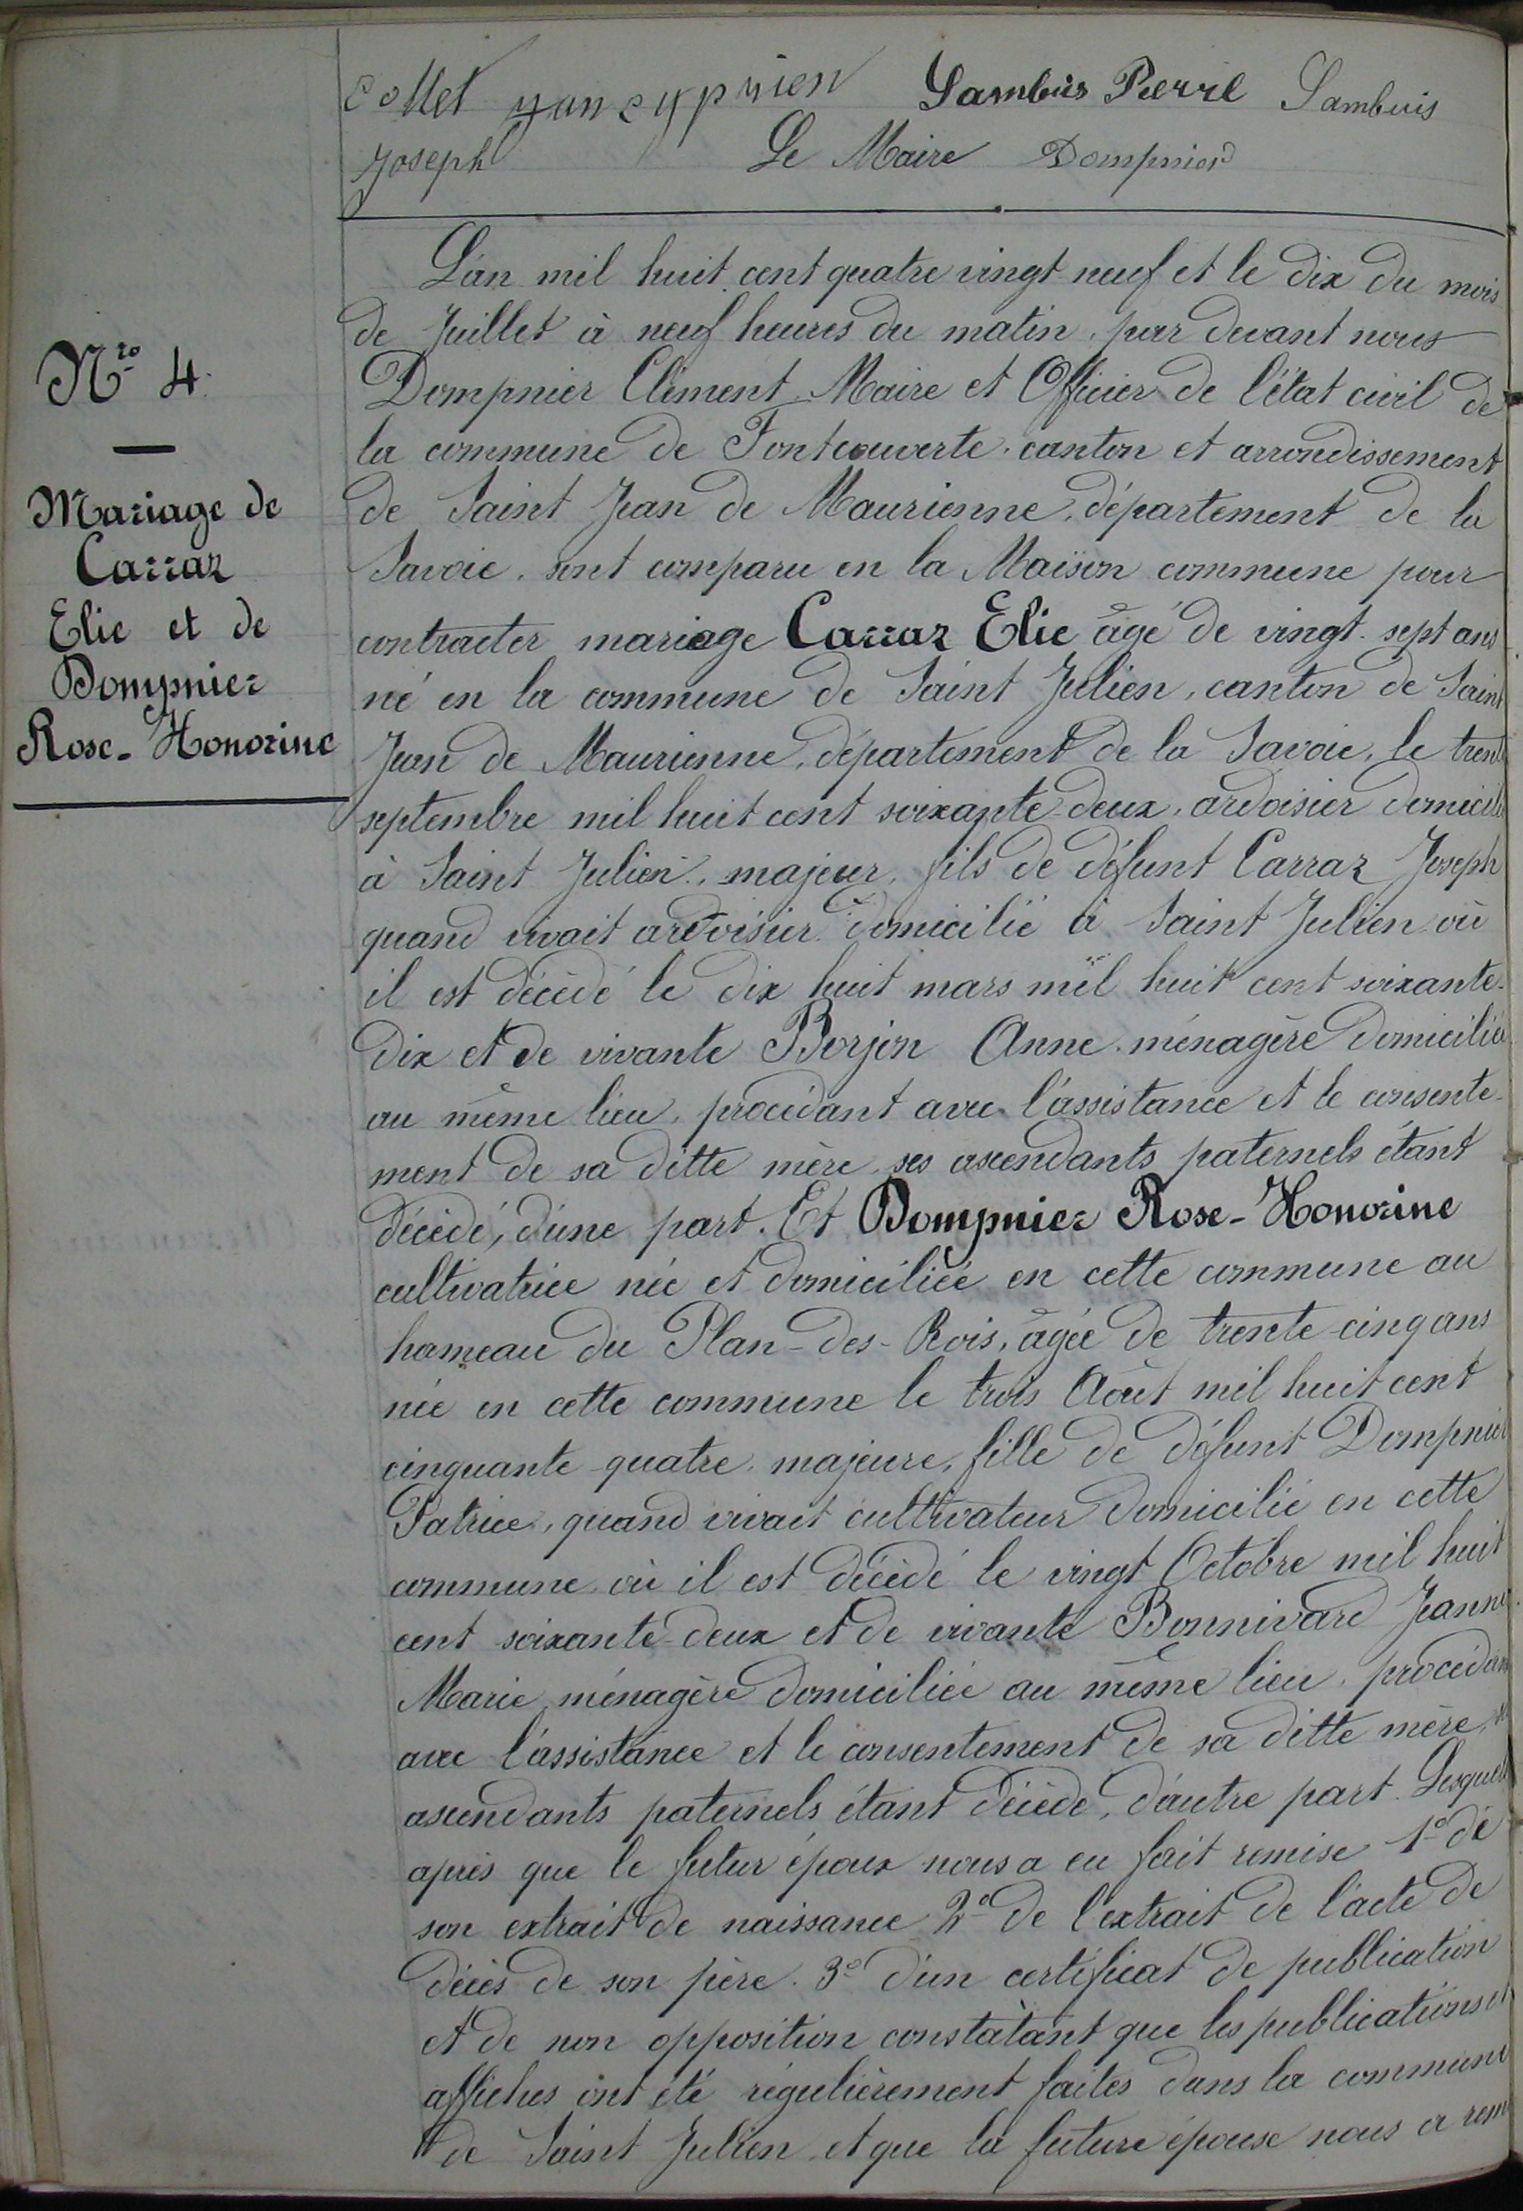 Collet jan cyprien Sambuis Pierre Sambuis
Joseph Le Maire Dompnier
L'an mil huit cent quatre vingt neuf et le dix du mois
de Juillet à neuf heures du matin, par devant nous
Dompnier Clément Maire et Officier de l'état civil de
la commune de Fontcouverte, canton et arrondissement
de Saint Jean de Maurienne, département de la
Savoie, sont comparu en la Maison commune pour
contracter mariage Carraz Elie âgé de vingt-sept ans
né en la commune de Saint Julien, canton de Saint
Jean de Maurienne, département de la Savoie, le trente
septembre mil huit cent soixante-deux, ardoisier domicilié
à Saint Julien, majeur, fils de défunt Carraz Joseph
quand vivait ardoisier domicilié à Saint Julien où
il est décédé le dix huit mars mil huit cent soixante-
dix et de vivante Borjon Anne, ménagère domiciliée
au même lieu, procédant avec l'assistance et le consente-
ment de sa ditte mère, ses ascendants paternels étant
décédé, d'une part. Et Dompnier Rose-Honorine
cultivatrice née et domiciliée en cette commune au
hameau du Plan-des-Rois, âgée de trente-cinq ans
née en cette commune le trois Août mil huit cent
cinquante-quatre, majeure, fille de défunt Dompnier
Patrice, quand vivait cultivateur domicilié en cette
commune où il est décédé le vingt Octobre mil huit
cent soixante-deux et de vivante Bonnivard Jeanne
Marie, ménagère domiciliée au même lieu, procédant
avec l'assistance et le consentement de sa ditte mère,
ascendants paternels étant décédé, d'autre part. Lesquels
après que le futur époux nous a eu fait remise 1º de
son extrait de naissance 2º de l'extrait de l'acte de
décès de son père. 3º d'un certificat de publication
et de non opposition constatant que les publications et
affiches ont été régulièrement faites dans la commune
de Saint Julien, et que la future épouse nous a
Nro 4.
Mariage de
Carraz
Elie et de
Dompnier
Rose-Honorine